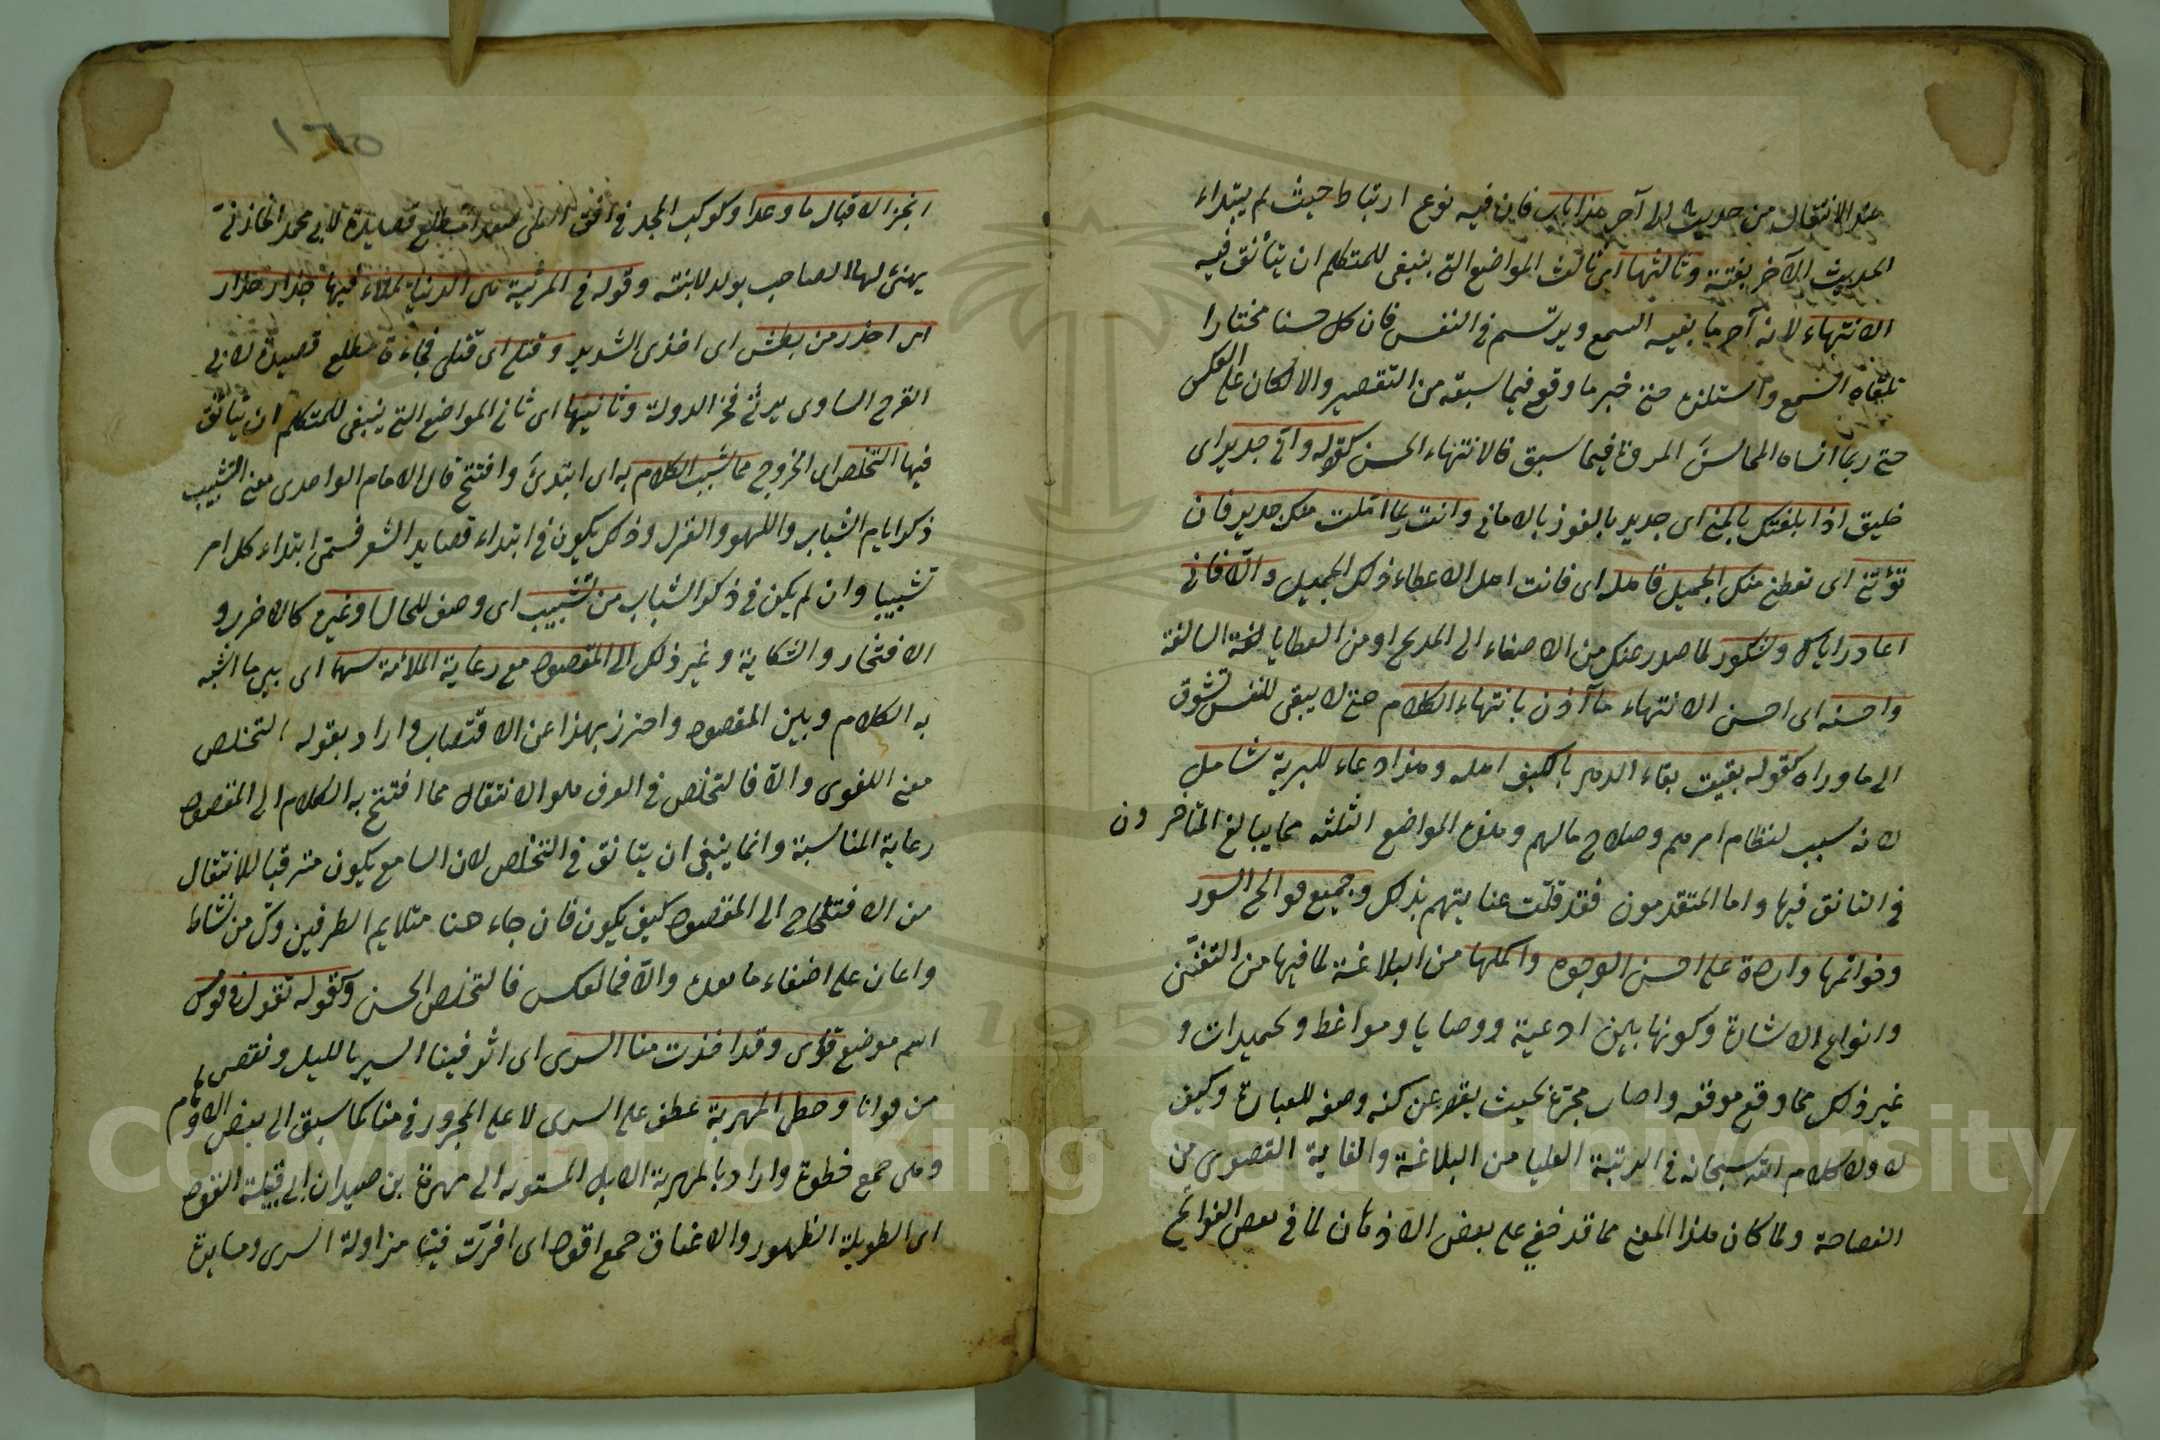 عند الانتقال من حديث الى آخر هذا باب فان فيه نوع ارتباط حيث لم يبتداء
الحديث الآخر بغتة وثالثها اى ثالث المواضع التى ينبغى للمتكلم ان يتأنق فيه
الانتهاء لانه آخر ما يعيه السمع ويرتسم فى النفس فان كل حسنا مختارا
تلقاه السمع واستلذه حتى خبر ما وقع فيما سبقه من التقصير والا لكان على العكس
حتى ربما انساه المحاسن الموردة فيما سبق فالانتهاء الحسن كقوله وانى جدير اى
خليق اذا بلغتك بالمنى اى جدير بالفوز بالامانى وانت بما املت منك جدير فان
تؤلنى اى تعطنى منك الجميل فاهله اى فانت اهل الاعطاء ذلك الجميل والا فانى
عاذر اياك وشكور لما صدر عنك من الاصغاء الى المديح او من العطايا السالفة
واحسنه اى احسن الانتهاء ما آذن بانتهاء الكلام حتى لا يبقى للنفس تشوق
الى ما وراه كقوله بقيت بقاء الدهر يا كهف اهله وهذا دعاء للبرية شامل
لانه سبب لنظام امرهم وصلاح حالهم وهذه المواضع الثلثة مما يبالغ المتأخرون
فى التانق فيها واما المتقدمون فقد قلت عنايتهم بذلك وجميع فواتح السور
وخواتمها واردة على احسن الوجوه واكملها من البلاغة لما فيها من التفنن
وانواع الاشارة وكونها بين ادعية ووصايا ومواعظ وتحميدات و
غير ذلك مما وقع موقعه واصاب محزه بحيث يقصر عن كنه وصفه العبارة وكيف
لا وكلام الله سبحانه فى الرتبة العليا من البلاغة والغاية القصوى من
الفصاحة ولما كان هذا المعنى مما قد خفى على بعض الاذهان لما فى بعض الفواتح
انجز الاقبال ما وعدا وكوكب المجد فى افق العلى صعدا مطلع قصيدة لابى محمد الخازن
يهنئ بها الصاحب بولد لابنته وقوله فى المرثية هى الدنيا تقول بملاء فيها حذار حذار
اى احذر من بطشى اى اخذى الشديد وفتكى اى قتلى فجاءة مطلع قصيدة لابى
الفرج الساوى يرثى فخر الدولة وثانيها اى ثانى المواضع التى ينبغى للمتكلم ان يتأنق
فيها التخلص اى الخروج مما شبب الكلام به اى ابتدئ وافتتح قال الامام الواحدى معنى التشبيب
ذكر ايام الشباب واللهو والغزل وذلك يكون فى ابتداء قصايد الشعر فسمى ابتداء كل امر
تشبيبا وان لم يكن فى ذكر الشباب من تشبيب اى وصف للجمال وغيره كالادب و
الافتخار والشكاية وغير ذلك الى المقصود مع رعاية الملائمة بينهما اى بين ما شبب
به الكلام وبين المقصود واحترز بهذا عن الاقتضاب واراد بقوله التخلص
معنى اللغوى والا فالتخلص فى العرف هو الانتقال مما افتتح به الكلام الى المقصود
رعاية المناسبة وانما ينبغى ان يتانق فى التخلص لان السامع يكون مترقبا للانتقال
من الافتتاح الى المقصود كيف يكون فان جاء حسنا متلايم الطرفين حرك من نشاط
واعان على اصغاء ما بعده والا فبالعكس فالتخلص الحسن كقوله تقول فى قومس
اسم موضع قومى وقد اخذت منا السرى اى اثر فينا السير بالليل ونقص
من قوانا وخطى المهرية عطف على السرى لا على المجرور فى منا كما سبق الى بعض الاوهام
وهى جمع خطوة واراد بالمهرية الابل المنسوبة الى مهرة بن حيدان ابى قبيلة القود
اى الطويلة الظهور والاعناق جمع اقود اى اثرت فينا مزاولة السرى ومسايرة